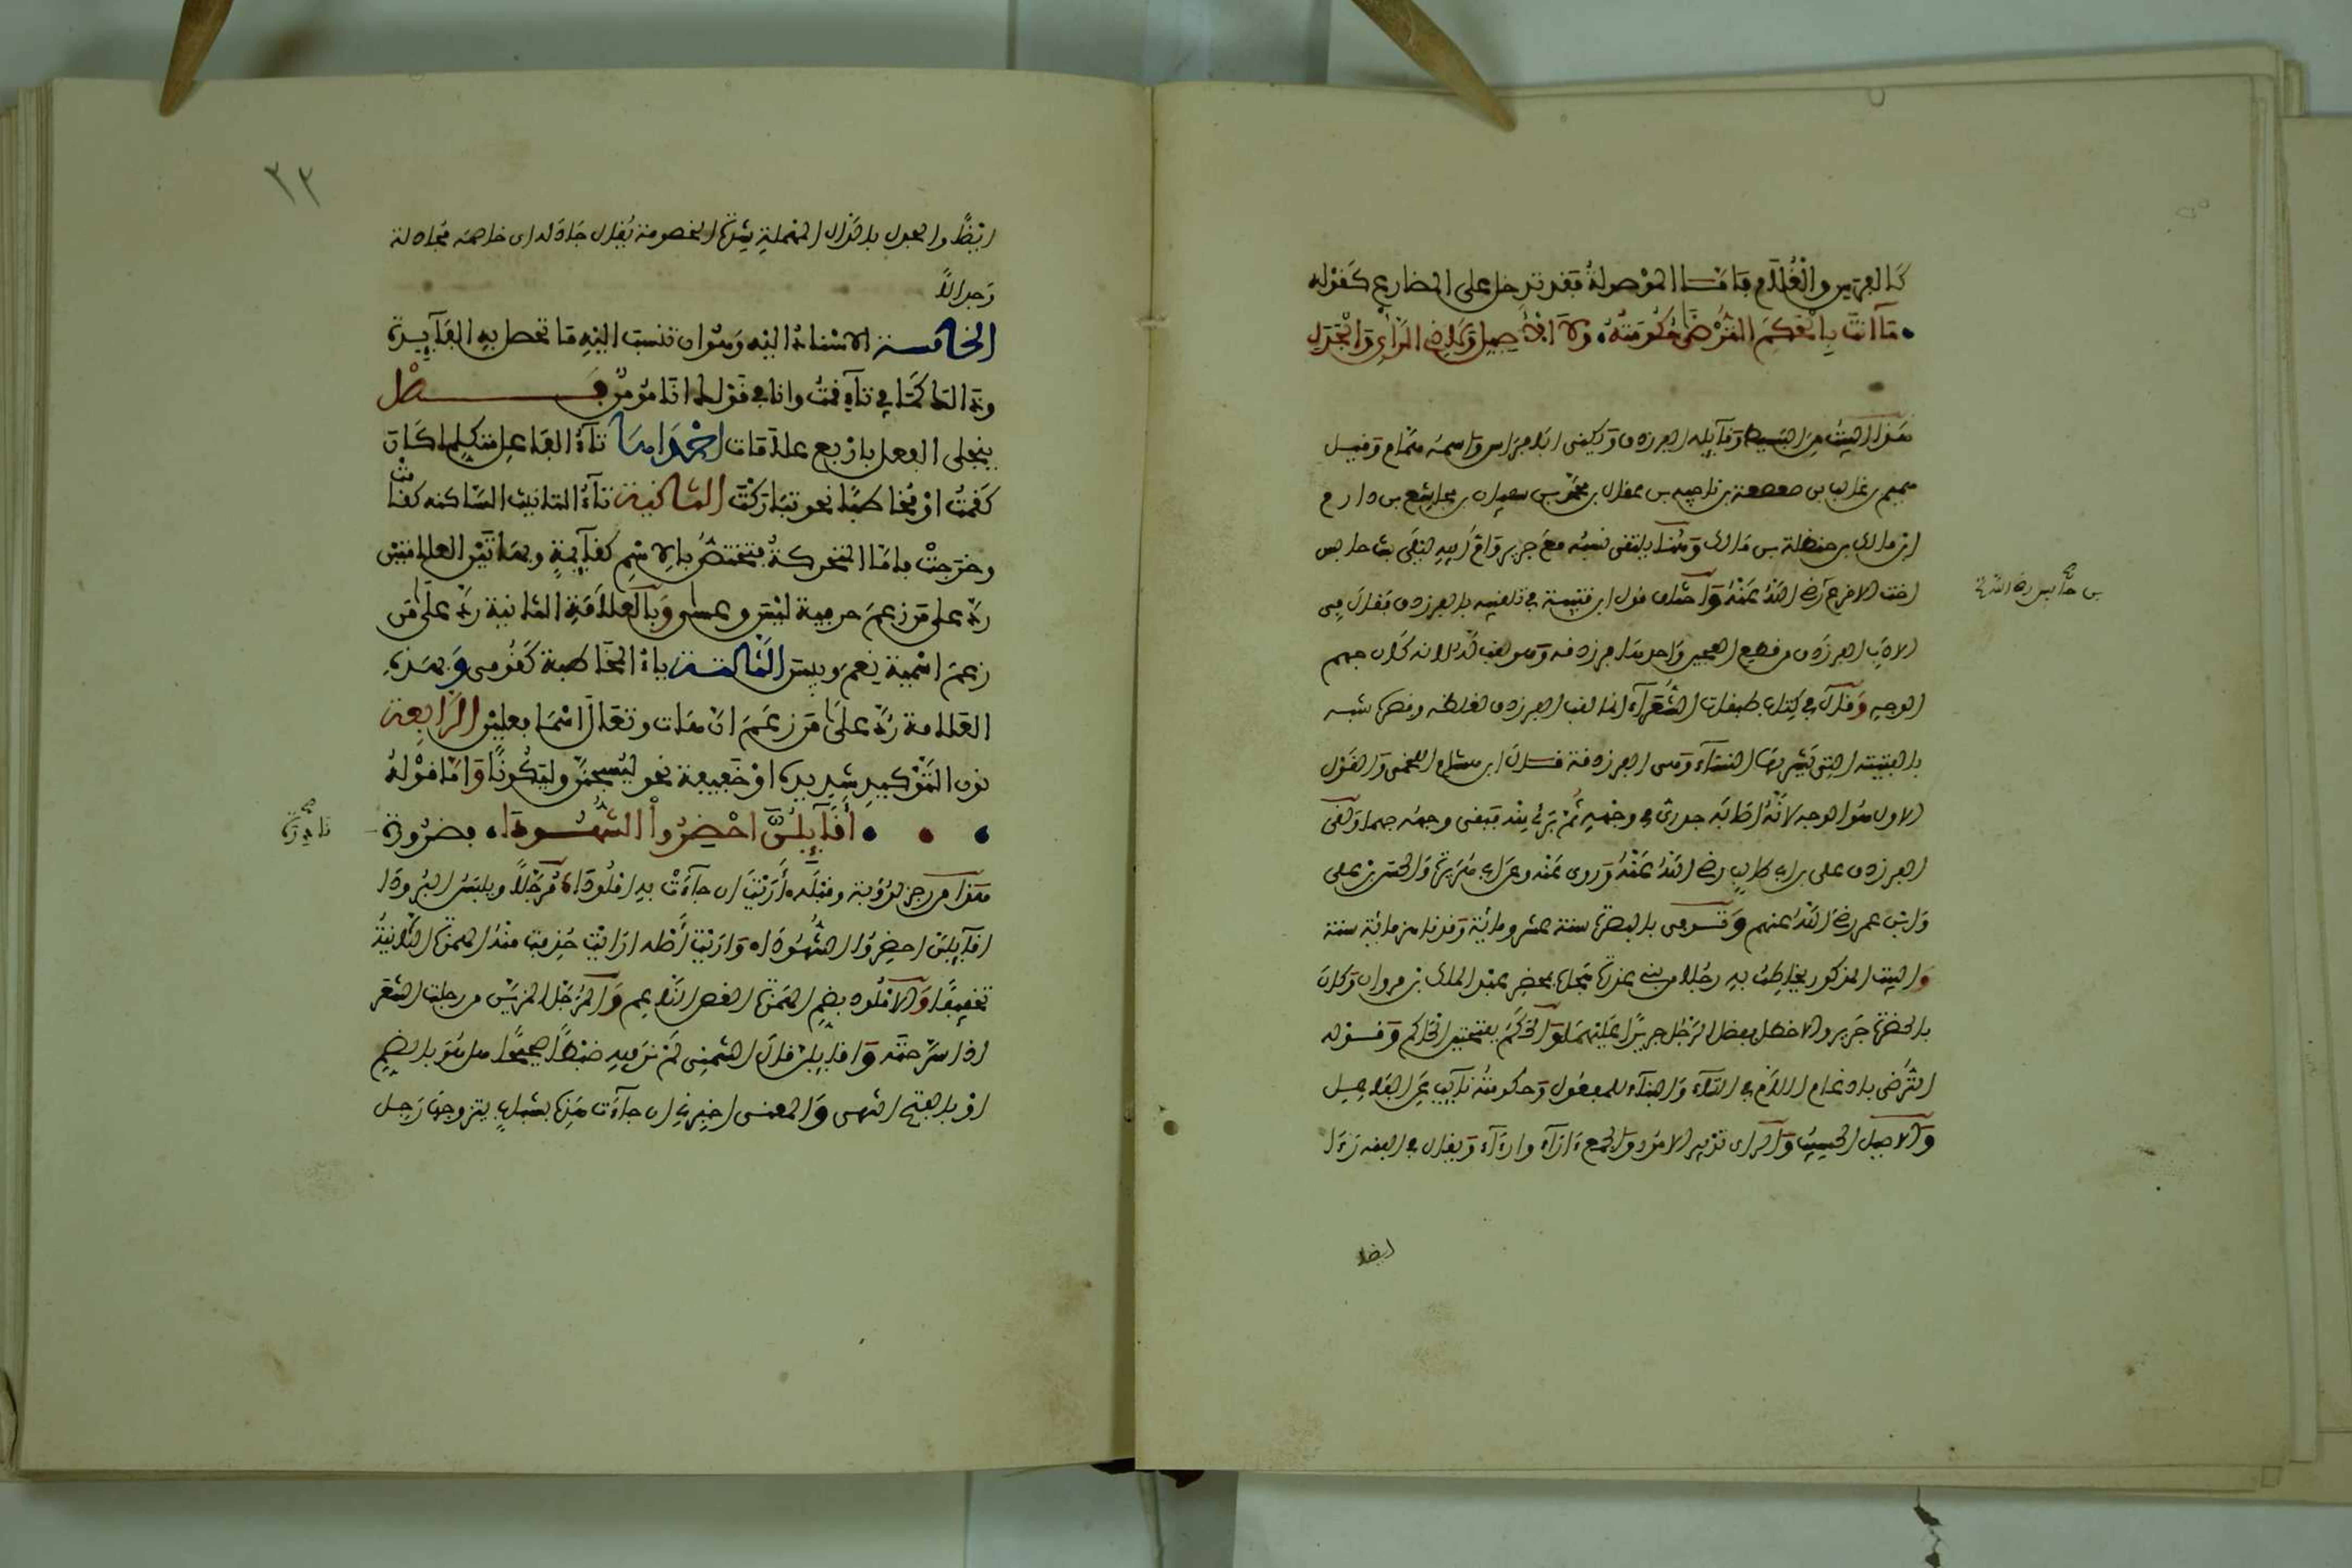 كالفرس والغلام فأما الموصولة فقد تدخل على المضارع كقوله
ما أنت بالحكم الترضى حكومته ولا الأصيل ولا ذي الرأي والجدل
هذا البيت من البسيط وقايله الفرزدق ويكنى ابا فراس واسمه همام وقيل
هميم بن غالب بن صعصعة بن ناجيه بن عقال بن محمد بن سفيان بن مجاشع بن دارم
ابن مالك بن حنظلة بن مالك وهنا يلتقى نسبه مع جرير وام ابيه ليلى بنت حابس
اخت الاقرع رضى الله عنه واختلف قول ابن قتيبة في تلقيبه بالفرزدق فقال في
بن حابس رضى الله
الادب الفرزدق قطع العجين واحدها فرزدقة وهو لقب له لانه كان جهم
الوجه وقال في كتاب طبقات الشعراء انما لقب الفرزدق لغلظه وقصره شبه
بالفتيتة التي تشربها النساء وهى الفرزدقة قال ابن هشام اللخمى والقول
الاول هو الوجه لانه اصابه جدرى في وجهه ثم برئ منه فبقى وجهه جهما ولقى
الفرزدق على بن ابى طالب رضى الله عنه وروى عنه وعن ابى هريرة والحسن بن على
وابن عمر رضى الله عنهم وتوفى بالبصرة سنة عشر ومائة وقد ناهز مائة سنة
والبيت المذكور يخاطب به رجلا من بنى عذرة هجاه بحضرة عبد الملك بن مروان وكان
بالحضرة جرير والاخطل ففضل الرجل جريرا عليهما والحكم بفتحتين الحاكم وقوله
الترضى بادغام اللام في التاء والبناء للمفعول وحكومته نايب عن الفاعل
والاصيل الحسيب والراى تدبير الامور والجمع ءاراء وارءاء ويقال في الفقه رءا
ايضا
٢٢
ايضا والجدل بالدال المهملة شدة الخصومة يقال جادله اى خاصمه مجادلة
وجدالا
الخامسة الاسناد اليه وهو ان تنسب اليه ما تحصل به الفايدة
وذالك كما في تاء قمت وانا في قولك انا مومن فصل
ينجلى الفعل باربع علامات احداها تاء الفاعل متكلما كان
كقمت او مخاطبا نحو تباركت الثانية تاء التانيث الساكنه كقامت
وخرجت فاما المتحركة فتختص بالاسم كقايمة وبهاتين العلامتين
رد على من زعم حرفية ليس وعسى وبالعلامة الثانية رد على من
زعم اسمية نعم وبيس الثالثة ياء المخاطبة كقومى وبهذه
العلامة رد على من زعم ان هات وتعال اسما فعلين الرابعة
نون التوكيد شديدة او خفيفة نحو ليسجنن وليكونا واما قوله
أقايلن احضروا الشهودا فضرورة
نادرة
هذا من رجز لرؤبة وقبله أريت ان جاءت به املودا مرجلا ويلبس البرودا
اقايلن احضروا الشهودا واريت أصله ارايت حذفت منه الهمزة الثانية
تخفيفا والاملود بضم الهمزة الغصن الناعم والمرجل المزين من رجلت الشعر
اذا سرحته واقايلن قال الشمنى لم نر فيه ضبطا صحيحا هل هو بالضم
او بالفتح انتهى والمعنى اخبرنى ان جاءت هذه بشاب يتزوجها رجل